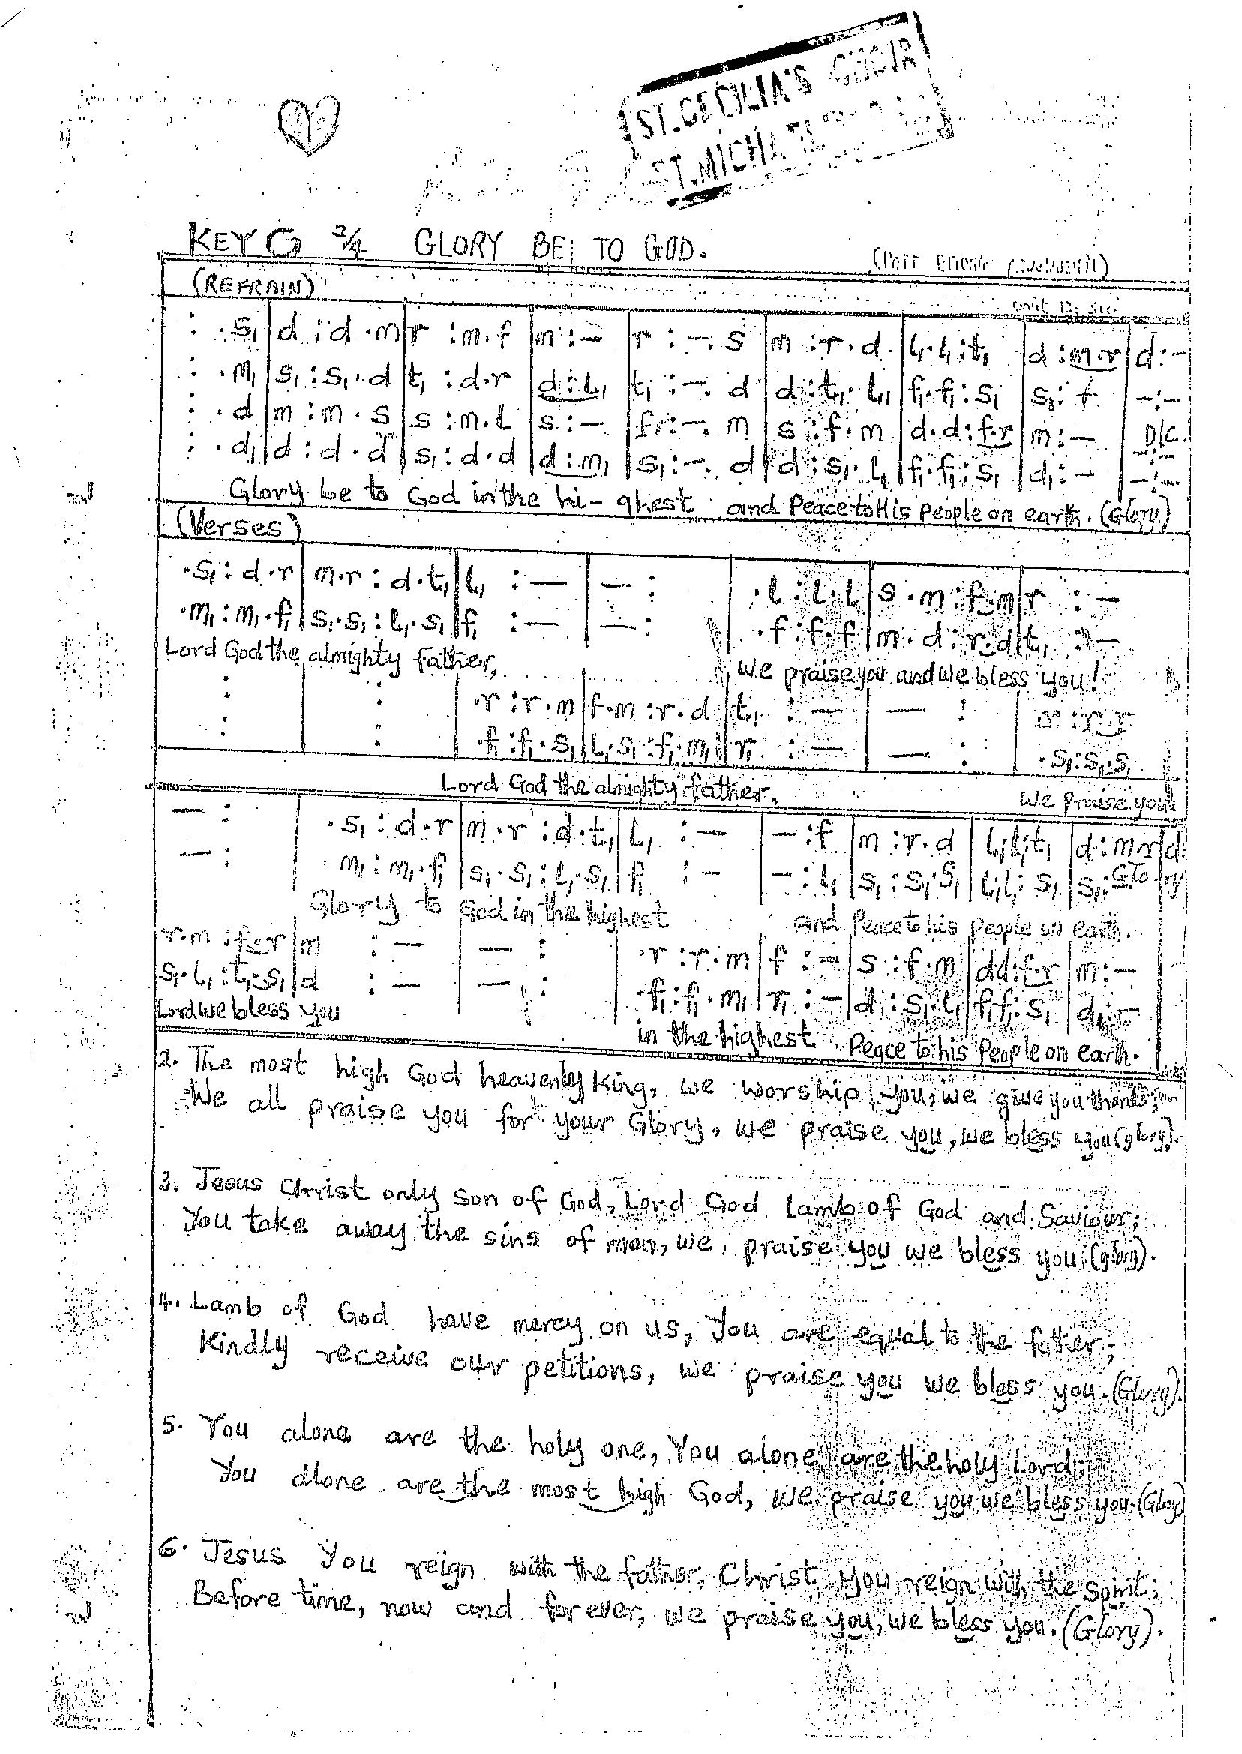 ST. CECILIA'S CHOIR
ST. MICHA
KEY G 2/4 GLORY BE TO GOD.
(REFRAIN)
: .s₁|d :d .m|r :m.f|m :—|r :—. s|m :r.d|l₁.l₁:t₁|d :m.r|d:–
: .m₁|s₁:s₁.d|t₁ :d.r|d:l₁|t₁ :—. d|d :t₁.l₁|f₁.f₁:s₁|s₁: f|–:–
: .d|m :m.s|s :m.l|s :–.|f :–. m|s :f.m|d.d:f.r|m :–|D.C.
: .d₁|d :d.d|s₁:d.d|d:m₁|s₁ :–. d|d :s₁.l₁|f₁.f₁:s₁|d₁:–|–:–
Glory be to God in the hi-ghest and Peace to His People on earth. (Glory)
(Verses)
.s₁: d.r|m.r : d.t₁|l₁ :—|— :|.l : l.l|s.m:f.m|r :–
.m₁: m₁.f₁|s₁.s₁: l₁.s₁|f₁ :—|— :|.f : f.f|m.d:r.d|t₁ :–
Lord God the almighty father, We praise you and we bless you!
: | : |.r :r.m|f.m :r.d|t₁ :—|— :|:r.r
: | : |.f₁:f₁.s₁|l₁.s₁:f₁.m₁|r₁ :—|— :|.s₁:s₁.s₁
Lord God the almighty father, We Praise you
— : |.s₁ : d.r|m.r : d.t₁|l₁ :—|–:f|m :r.d|l₁.l₁:t₁|d:m.r|d:
— : |m₁ : m₁.f₁|s₁.s₁: l₁.s₁|f₁ :—|–:l₁|s₁ :s₁.s₁|l₁.l₁: s₁|s₁: Glory
Glory to God in the highest and Peace to his people on earth.
r.m :f.r|m :—|— :|.r :r.m|f :–|s :f.m|d.d:f.r|m:–
s₁.l₁:t₁.s₁|d :—|— :|.f₁:f₁.m₁|r₁ :–|d :s₁.l₁|f₁.f₁:s₁|d₁:–
Lord we bless you in the highest Peace to his People on earth.
2. The most high God heavenly King, we worship you, we give you thanks;
We all praise you for your Glory, we praise you, we bless you (glory).
3. Jesus Christ only son of God, Lord God Lamb of God and Saviour;
You take away the sins of man, we praise you we bless you (glory).
4. Lamb of God have mercy on us, You are equal to the father;
Kindly receive our petitions, we praise you we bless you. (Glory).
5. You alone are the holy one, You alone are the holy Lord;
You alone are the most high God, we praise you we bless you. (Glory)
6. Jesus You reign with the father, Christ You reign with the Spirit;
Before time, now and forever, we praise you, we bless you. (Glory).